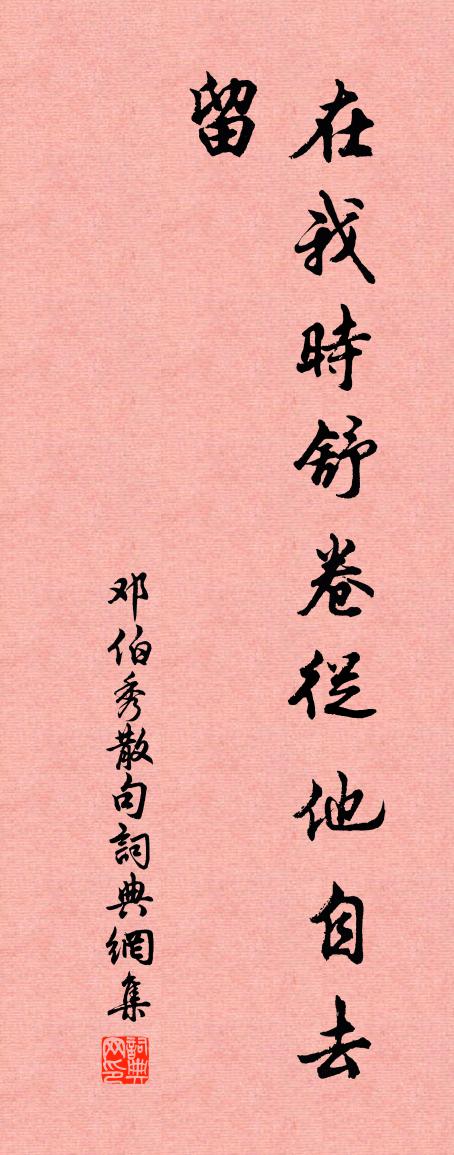 在我時舒卷從他自去
留
邓伯秀散句詞典網集
詞典网印